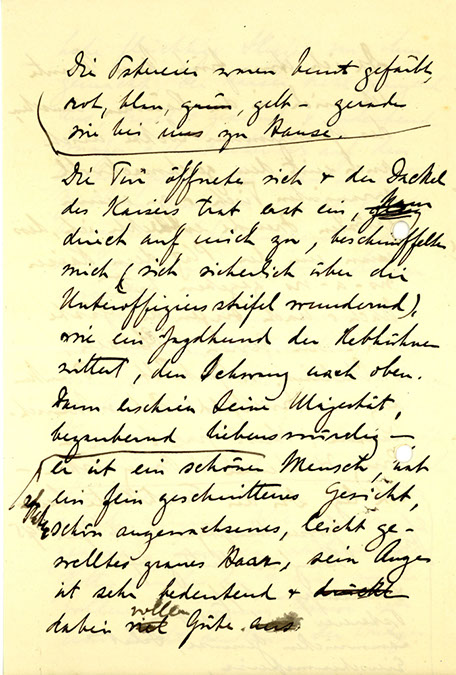 Die Ostereier waren bunt gefärbt,
rot, blau, grün, gelb – gerade
wie bei uns zu Hause.
Die Tür öffnete sich + der Dackel
des Kaisers trat erst ein,
direkt auf mich zu, beschnüffelte
mich (sich sicherlich über die
Unteroffiziersstiefel wundernd),
wie ein Jagdhund der Rebhühner
wittert, den Schwanz nach oben.
Dann erschien Seine Majestät,
bezaubernd liebenswürdig –
er ist ein schöner Mensch, hat
ein fein geschnittenes Gesicht,
schön angewachsenes, leicht ge-
welltes graues Haar, sein Auge
ist sehr bedeutend + drückt
dabei viel vollen Güte aus.